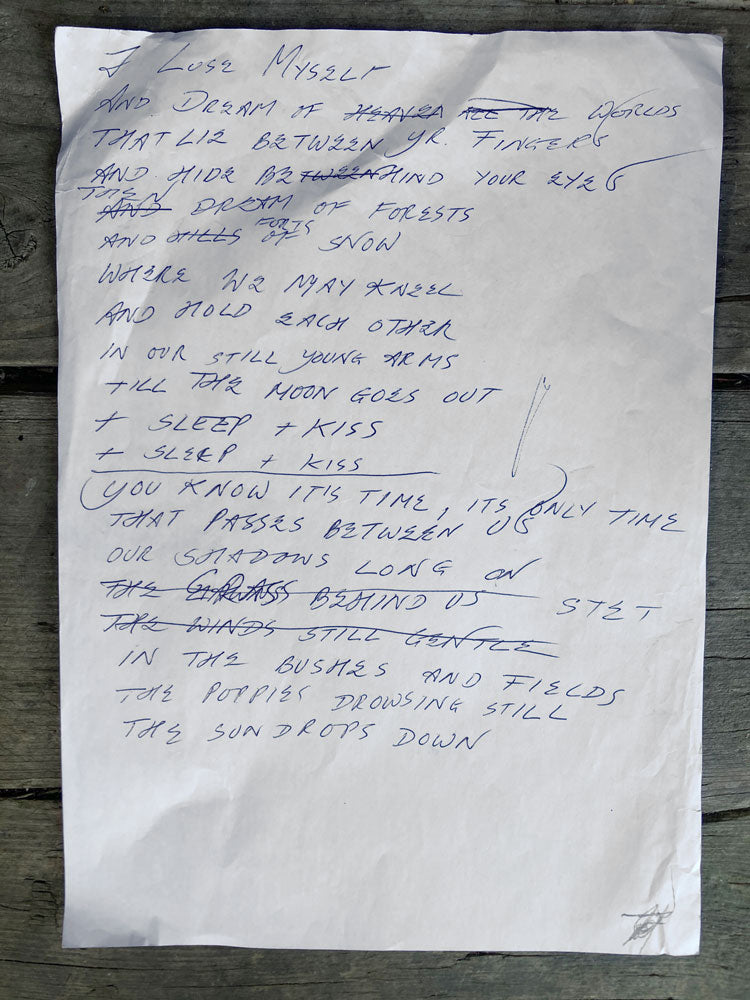 I LOSE MYSELF
AND DREAM OF HEAVEN ALL THE WORLDS
THAT LIE BETWEEN YR. FINGERS
AND HIDE BETWEENHIND YOUR EYES
THEN
AND DREAM OF FORESTS
FORTS
AND HILLS OF SNOW
WHERE WE MAY KNEEL
AND HOLD EACH OTHER
IN OUR STILL YOUNG ARMS
TILL THE MOON GOES OUT
+ SLEEP + KISS
+ SLEEP + KISS
YOU KNOW IT'S TIME, ITS ONLY TIME
THAT PASSES BETWEEN US
OUR SHADOWS LONG ON
THE GRASS BEHIND US STET
THE WINDS STILL GENTLE
IN THE BUSHES AND FIELDS
THE POPPIES DROWSING STILL
THE SUN DROPS DOWN